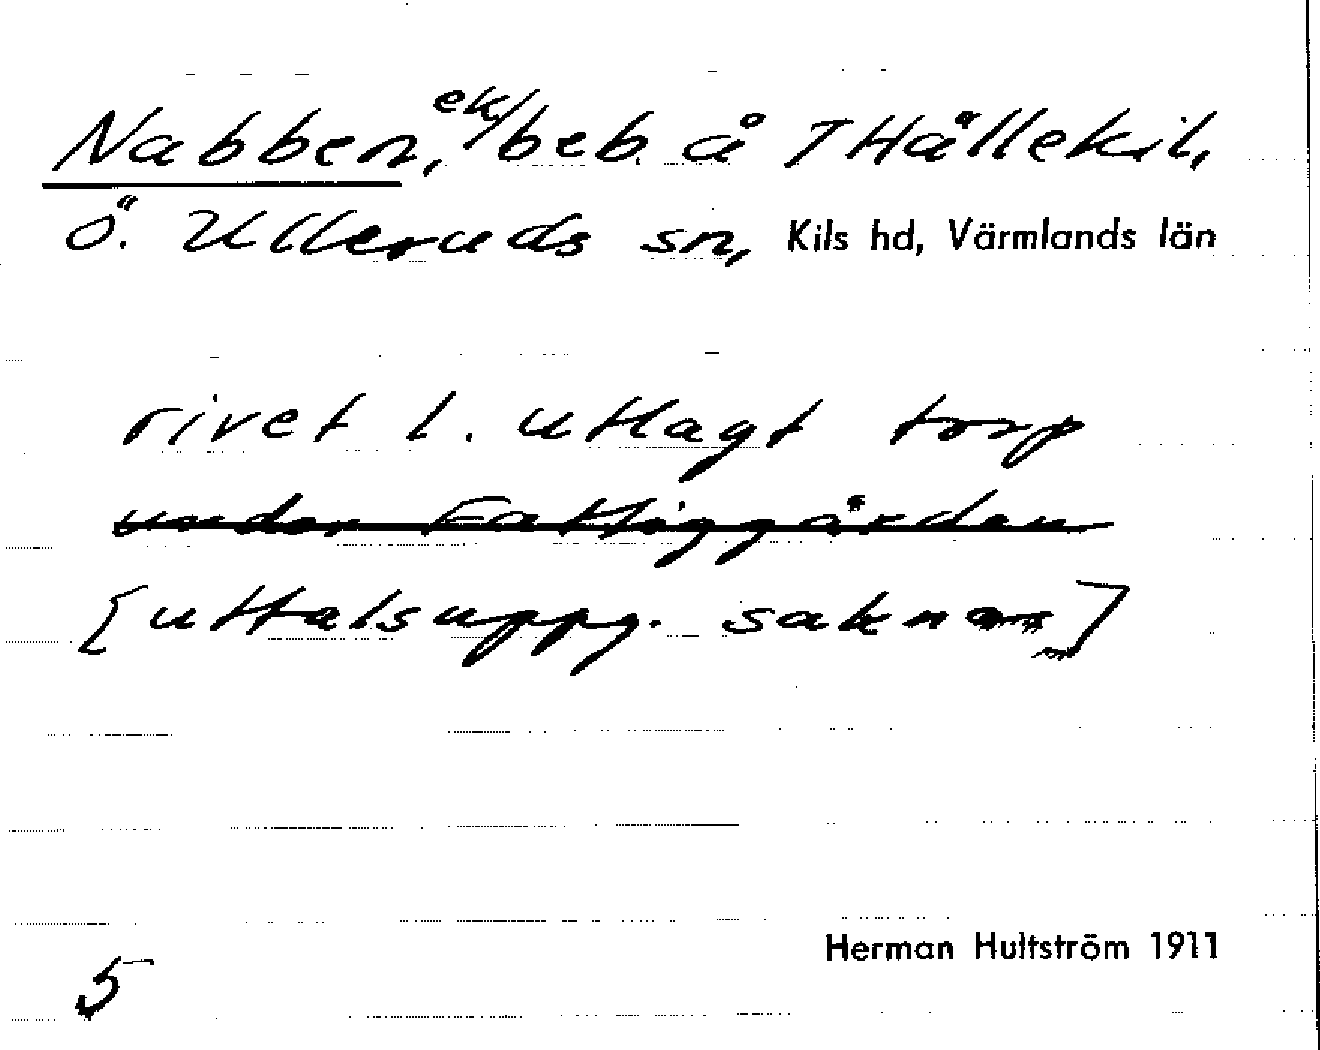 Nabben, ek/beb. å T Hällekil,
Ö. Ulleruds sn, Kils hd, Värmlands län
rivet l. utlagt torp
under Fattiggården
[uttalsuppg. saknas]
Herman Hultström 1911
5